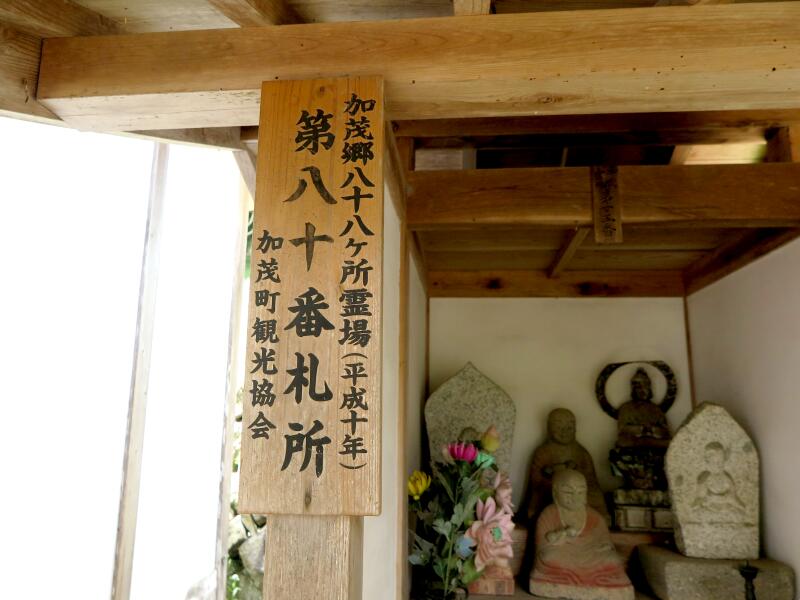 加茂郷八十八ヶ所霊場(平成十年)
第八十番札所
加茂町観光協会